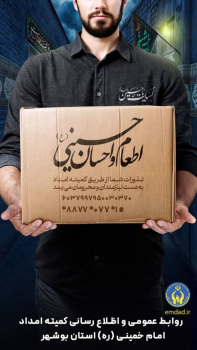 اطعام و احسان حسینی (ع)
نذورات شما از طریق کمیته امداد
به دست نیازمندان و محرومان می‌رسد
۶۰۳۷۹۹۷۹۵۰۰۳۰۳۷۰
*۸۸۷۷*۰۷۷۱#
emdad.ir
روابط عمومی و اطلاع رسانی کمیته امداد
امام خمینی (ره) استان بوشهر